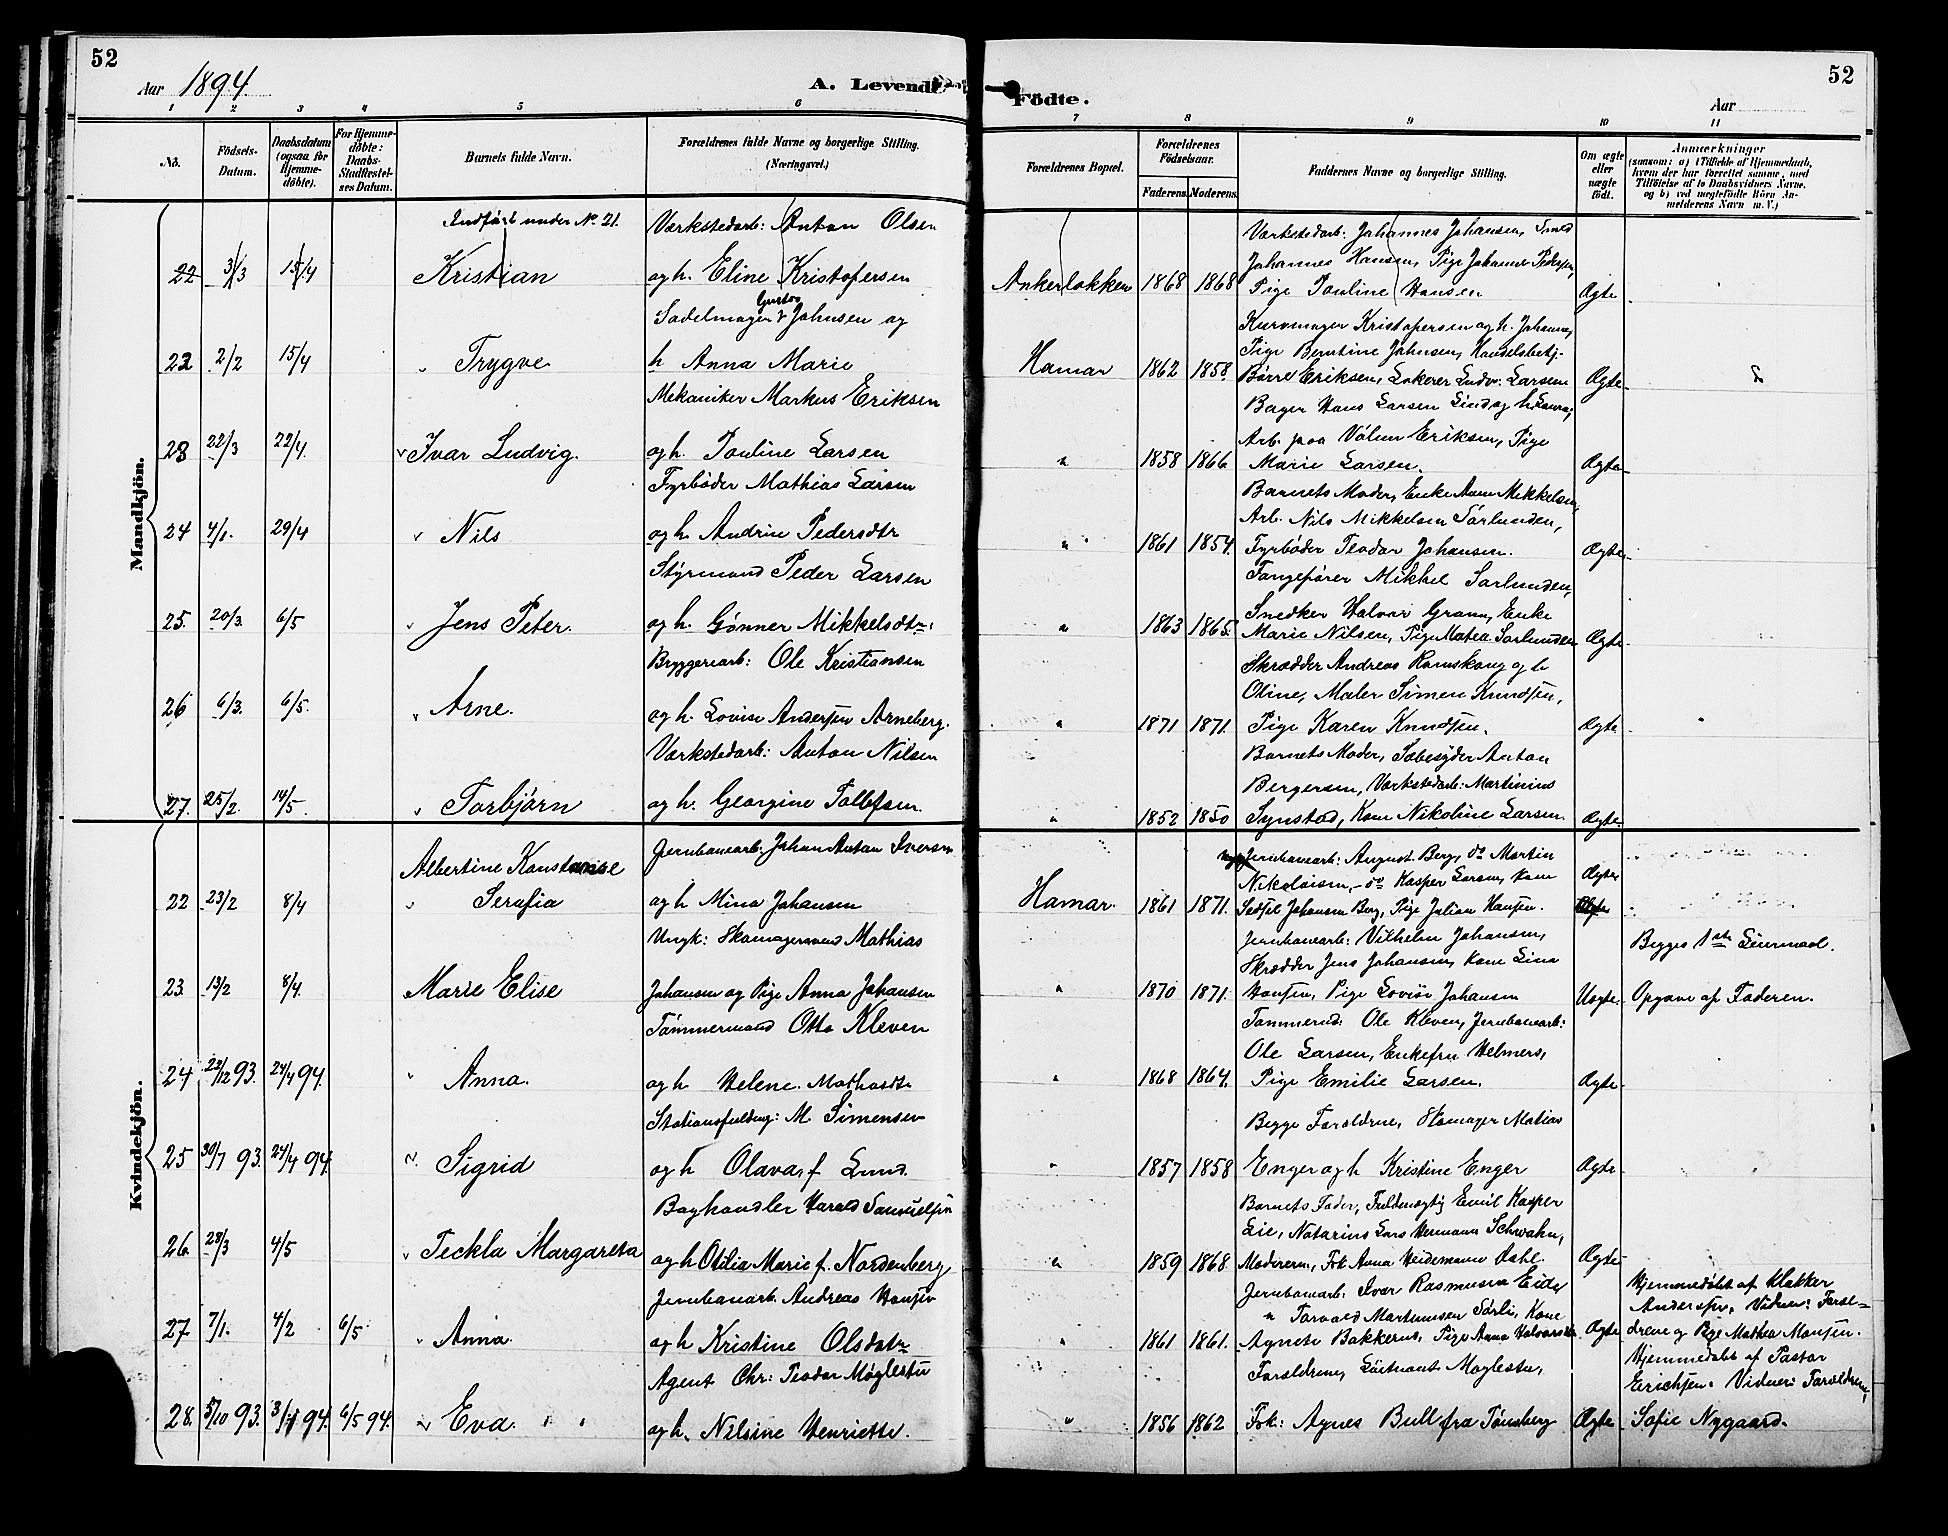 52
Aar 1894.
A. Levende
Födte.
Aar
52
1 2 3 4 5 6 7 8 9 10 11
No.
Födsels-Datum.
Daabsdatum (ogsaa for Hjemme-döbte).
For Hjemme-döbte: Daabs-Stadfæstel-ses Datum.
Barnets fulde Navn.
Forældrenes fulde Navne og borgerlige Stilling. (Næringsvei.)
Forældrenes Bopæl.
Forældrenes Födselsaar.
Faderens. Moderens.
Faddernes Navne og borgerlige Stilling.
Om ægte eller uægte födt.
Anmærkninger (saasom: a) i Tilfælde af Hjemmedaab, hvem der har forrettet samme, med Tilföielse af to Daabsvidners Navne, og b) ved uegtefödte Börn An-melderens Navn m. V.)
Mandkjön.
Indført under No. 21. Værkstedarb: Anton Olsen
Værkstedarb: Johannes Johansen, Smed
Johannes Hansen, Pige Johanne
22 3/3 15/4 Kristian og h. Eline Kristofersen Ankerløkken 1868 1868 Pige Pauline Hansen Ægte
Sadelmager Gustav Johnsen og
Kurvmager Kristofersen og h. Johanne,
Pige Berntine Johnsen, Handelsbetj.
22 2/2 15/4 " Trygve h Anna Marie Hamar 1862 1858. Børre Eriksen, Lakerer Ludv: Larsen Ægte
Mekaniker Markus Eriksen
Bager Hans Larsen Lind og h. Laura,
Arb. paa Vølun Eriksen, Pige
23 22/3 22/4 " Ivar Ludvig. og h. Pauline Larsen " 1858 1866 Marie Larsen. Ægte
Fyrbøder Mathias Larsen
Barnets Moder, Enke Anne Mikkelsen,
Arb. Nils Mikkelsen Sørlunden,
24 4/1. 29/4 " Nils og h. Andrine Pedersdtr " 1861 1854. Fyrbøder Teodor Johansen. Ægte
Styrmand Peder Larsen
Tangefører Mikkel Sørlunden,
Snedker Halvor Grann, Enke
25. 20/3. 6/5 " Jens Peter. og h. Gønner Mikkelsdtr: " 1863 1865. Marie Nilsen, Pige Matea Sørlunden Ægte
Bryggeriarb: Ole Kristiansen
Skrædder Andreas Ramskoug og h
Oline, Maler Simen Knudsen,
26 6/3. 6/5. " Arne. og h. Lovise Andersen Arneberg. " 1871 1871. Pige Karen Knudsen. Ægte
Værkstedarb: Anton Nilsen
Barnets Moder, Sæbesyder Anton
Bergersen, Værkstedarb: Martinius
27. 25/2. 14/5. " Torbjørn og h. Georgine Tollefsen. " 1852 1850 Synstad, Kone Nikoline Larsen. Ægte
Kvindekjön.
Albertine Konstanse Jernbanearb: Johan Anton Iversen
Jernbanearb: August Berg, do Martin
Nikolaisen, do Kasper Larsen, Kone
22 23/2 8/4 " Serafia og h Mina Johansen Hamar. 1861 1871. Sedsel Johansen Berg, Pige Julian Hansen. Ægte
Ungk: Skomagersvend Mathias
Jernbanearb: Vilhelm Johansen,
Skrædder Jens Johansen, Kone Lina
Begges 1ste Leiermaal.
23. 13/2 8/4. Marie Elise Johansen og Pige Anna Johansen " 1870 1871. Hansen, Pige Lovise Johansen Uægte. Opgave af Faderen.
Tømmermand Otto Kleven
Tømmermd: Ole Kleven, Jernbanearb:
Ole Larsen, Enkefru Helmers,
24 22/12 93. 24/4 94. " Anna. og h Helene Mathisdtr " 1868 1864. Pige Emilie Larsen. Ægte
Stationsfuldmg: M. Simensen
Begge Forældrene, Skomager Matias
25 30/7 93. 24/4 94. " Sigrid og h Olava, f. Lund. " 1857 1858 Enger og h Kristine Enger Ægte
Boghandler Harald Samuelsen
Barnets Fader, Fuldmægtig Emil Kasper
Lie, Notarius Lars Hermann Schwahn,
26. 28/3 4/5 " Teckla Margareta og h Otilia Marie f. Nordenberg " 1859 1868. Moderen, Frk Anna Heidemann Dahl. Ægte
Jernbanearb. Andreas Hansen
Jernbanearb: Iver Rasmussen Eide
" Torvald Martinusen Sørli, Kone
Hjemmedøbt af Klokker
Andersen. Vidner: Foræl-
27 7/1. 4/2 6/5 " Anna og h Kristine Olsdatr " 1861 1861. Agnete Bakkerns, Pige Anna Halvorsdtr Ægte drene og Pige Mathea Monsen.
Agent Chr: Teodor Møglestu
Forældrene, Løitnant Møglestue,
Hjemmedøbt af Pastor
Erichsen. Vidner: Forældrene,
28. 5/10 93. 3/1 94. 6/5 94. " Eva. og h. Nilsine Henriette. " 1856 1862 Frk: Agnes Bull fra Tønsberg Ægte Sofie Nygaard.